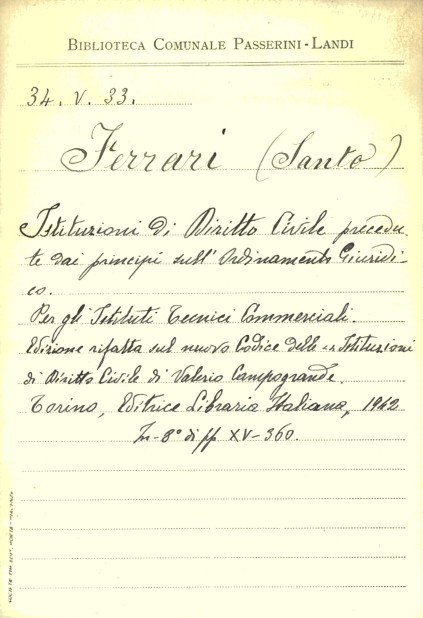 BIBLIOTECA COMUNALE PASSERINI-LANDI
34. V. 33.
Ferrari (Santo)
Istituzioni di Diritto Civile precedu-
te dai principi sull'Ordinamento Giuridi-
co.
Per gl'Istituti Tecnici Commerciali.
Edizione rifatta sul nuovo Codice delle "Istituzioni
di Diritto Civile di Valerio Campogrande.
Torino, Editrice Libraria Italiana, 1942
In-8° di pp XV-360.